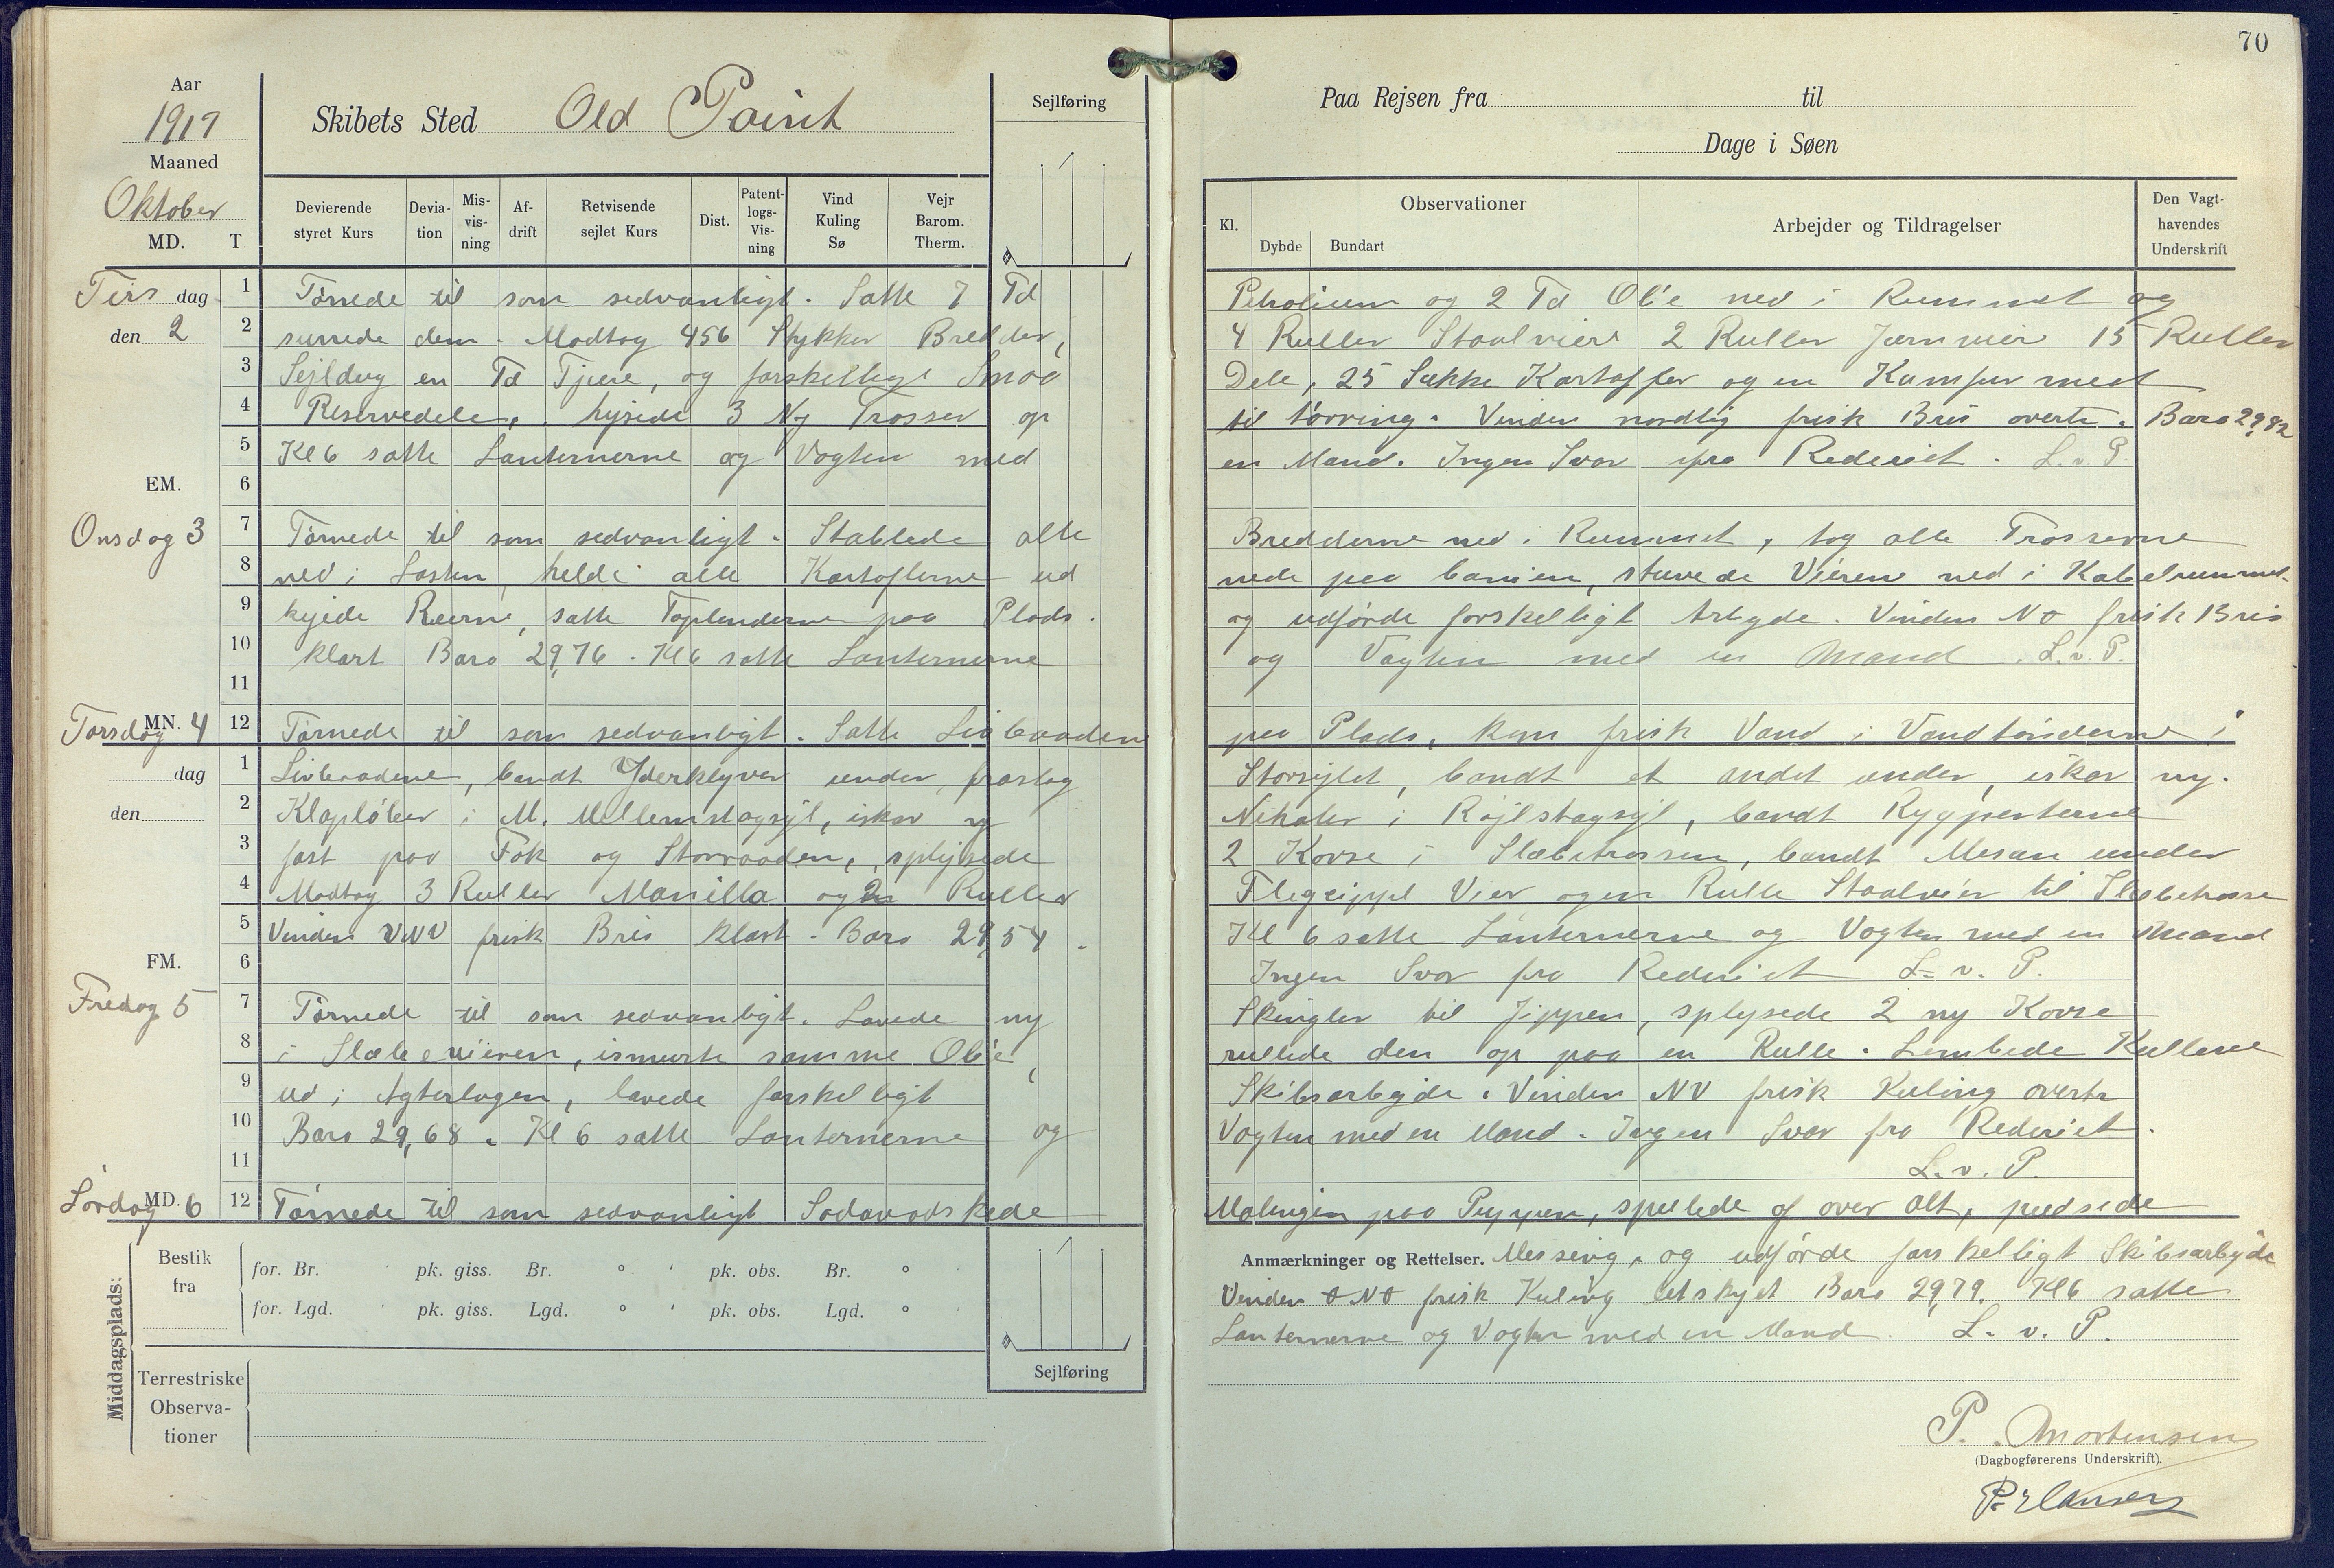 70
Aar
1917
Maaned
Oktober
MD. T.
Skibets Sted Old Point
Sejlføring
Devierende styret Kurs
Deviation
Misvisning
Afdrift
Retvisende sejlet Kurs
Dist.
Patentlogs-Visning
Vind Kuling Sø
Vejr Barom. Therm.
Paa Rejsen fra til
Dage i Søen
Kl.
Observationer
Dybde Bundart
Arbejder og Tildragelser
Den Vagthavendes Underskrift
Tirs dag 1 Törnede til som sedvanligt. Satte 7 Td Petrolium og 2 Td Olie ned i Rummet og
den 2 2 surrede dem. Modtog 456 Stykker Bredder, 4 Ruller Staalvier 2 Ruller Jernvier 15 Ruller
3 Sejldug en Td Tjere, og forskellige Smaa Dele, 25 Sække Kartofler og en Kamfur med
4 Reservedele, hysede 3 Ny Trosser op til törring. Vinden nordlig frisk Bris overtr. Baro 29,82
5 Kl 6 satte Lanternerne og Vagten med en Mand. Ingen Svar fra Rederiet. L. v. P.
EM. 6
Onsdag 3 7 Törnede til som sedvanligt. Stablede alle Bredderne ned i Rummet, tog alle Trosserne
8 ned i Lasten heldi alle Kartoflerne ud nede paa banien, stuvede Vieren ned i Kabelrummet
9 kyede Reerne, satte Toplenderne paa Plads. og udförde forskelligt Arbyde. Vinden NO frisk Bris
10 klart Baro 29,76. Kl 6 satte Lanternerne og Vagten med en Mand. L. v. P.
11
Torsdag MN. 4 12 Törnede til som sedvanligt. Satte Livbaadene paa Plads, kom frisk Vand i Vandtönderne i
dag 1 Livbaadene, bandt Yderklyver under, fraslog Storsejlet, bandt et andet under, iskar ny.
den 2 Klapløber i M. Mellemstagsejl, iskar ny Nihaler i Röjlstagsejl, bandt Rygpenterne
3 fast paa Fok og Storraaden, splejsede 2 Kovse i Slæbetrossen, bandt Mesan under
4 Modtog 3 Ruller Manilla og 2 Ruller Vier og en Rulle Staalvier til Slæbetrosse
5 Vinden VNV frisk Bris klart. Baro 29,54. Kl 6 satte Lanternerne og Vagten med en Mand
FM. 6 Ingen Svar fra Rederiet L. v. P.
Fredag 5 7 Törnede til som sedvanligt. Lavede ny Skingler til Jippen, splejsede 2 ny Kovse
8 i Slæbevieren, ismurte samme Olie, rullede den op paa en Rulle. Lembede Kullene
9 ud i Agterlugen, lavede forskelligt Skibsarbejde. Vinden NV frisk Kuling overtr
10 Baro 29,68. Kl 6 satte Lanternerne og Vagten med en Mand. Ingen Svar fra Rederiet.
11 L. v. P.
Lördag MD. 6 12 Törnede til som sedvanligt Sodavadskede Malingen paa Puppen, spulede af over Alt, pudsede
Middagsplads:
Bestik fra
for. Br. pk. giss. Br. ° ' pk. obs. Br. °
for. Lgd. pk. giss. Lgd. ° ' pk. obs. Lgd. °
Sejlføring
Terrestriske Observationer
Anmærkninger og Rettelser. Messing, og udförde forskelligt Skibsarbyde
Vinden ONO frisk Kuling letskyet Baro 29,79. Kl 6 satte
Lanternerne og Vagten med en Mand. L. v. P.
P. Mortensen
(Dagbogførerens Underskrift).
P. Hansen